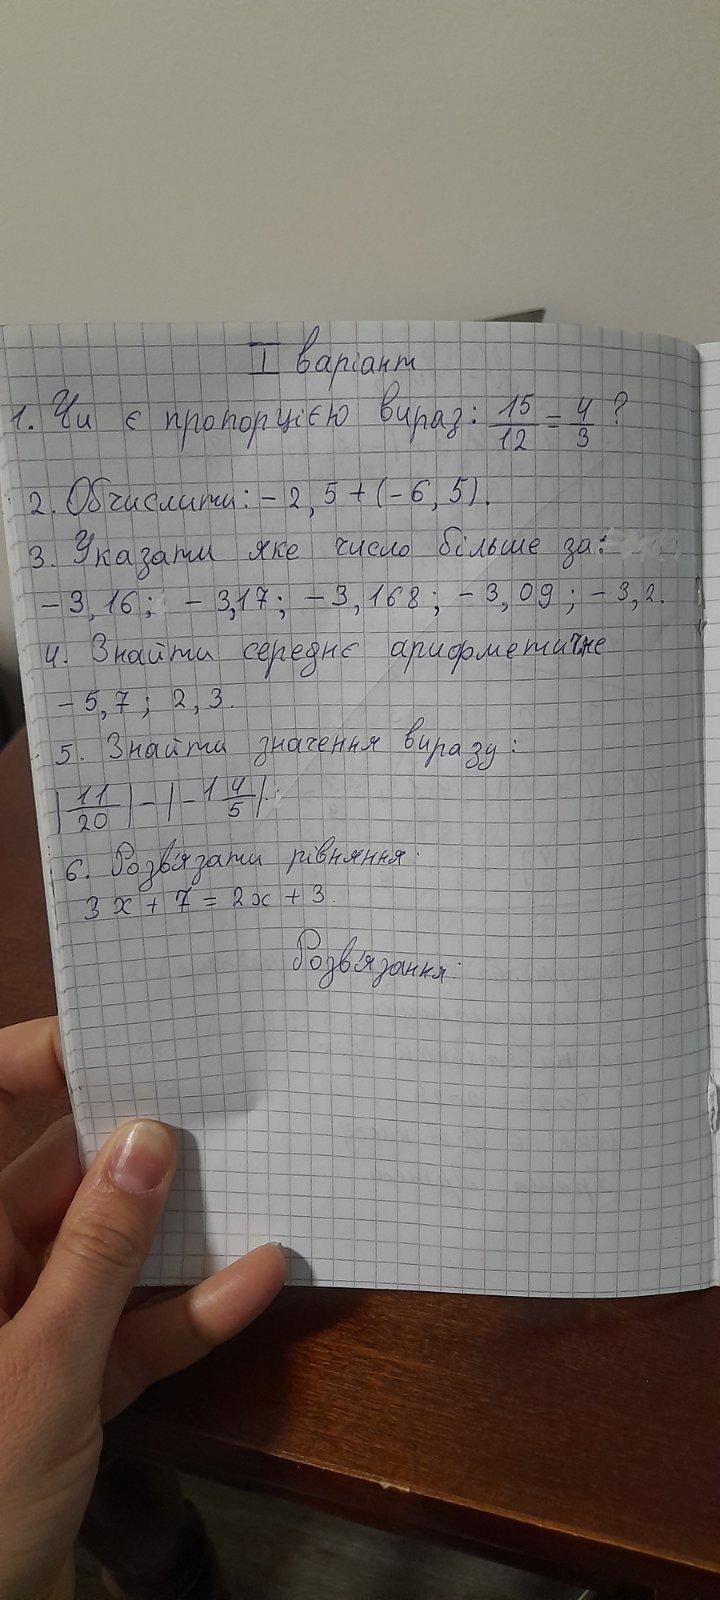 I варіант
1. Чи є пропорцією вираз: 15/12 = 4/3 ?
2. Обчислити: - 2,5 + (- 6,5).
3. Указати яке число більше за:
- 3,16; - 3,17; - 3,168; - 3,09; - 3,2.
4. Знайти середнє арифметичне
- 5,7; 2,3.
5. Знайти значення виразу:
|11/20| - |- 1 4/5|.
6. Розв'язати рівняння
3x + 7 = 2x + 3.
Розв'язання: